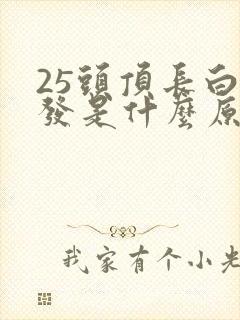 25頭頂長白
發是什麼原
我家有个小老